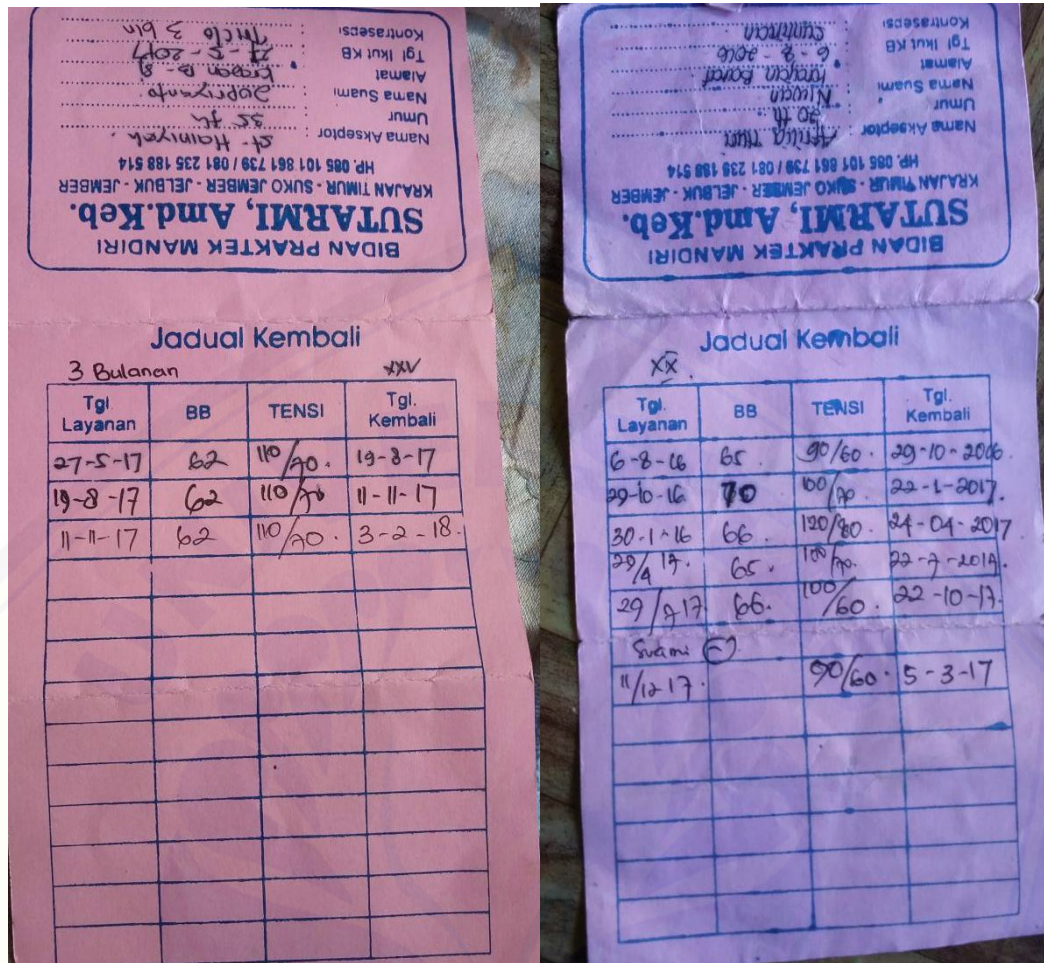 BIDAN PRAKTEK MANDIRI
SUTARMI, Amd.Keb.
KRAJAN TIMUR - SUKO JEMBER - JELBUK - JEMBER
HP. 085 101 861 739 / 081 235 188 514
Nama Akseptor : St. Hamiyah
Umur 35 th
Nama Suami
Alamat
Tgl Ikut KB 27-5-2017
Kontrasepsi 3 bln
Jadual Kembali
3 Bulanan XXV
Tgl. Layanan BB TENSI Tgl. Kembali
27-5-17 62 110/70. 19-8-17
19-8-17 62 110/70 11-11-17
11-11-17 62 110/70. 3-2-18.
BIDAN PRAKTEK MANDIRI
SUTARMI, Amd.Keb.
KRAJAN TIMUR - SUKO JEMBER - JELBUK - JEMBER
HP. 085 101 861 739 / 081 235 188 514
Nama Akseptor :
Umur 20 th
Nama Suami
Alamat Krajan Barat
Tgl Ikut KB 6-8-2016
Kontrasepsi Suntikan
Jadual Kembali
XX.
Tgl. Layanan BB TENSI Tgl. Kembali
6-8-16 65. 90/60. 29-10-2016.
29-10-16 70 100/70. 22-1-2017.
30-1-16 66. 120/80. 24-04-2017
29/4 17. 65. 100/70. 22-7-2017.
29/7 17. 66. 100/60. 22-10-17.
Suami (-)
11/12 17. 90/60. 5-3-17